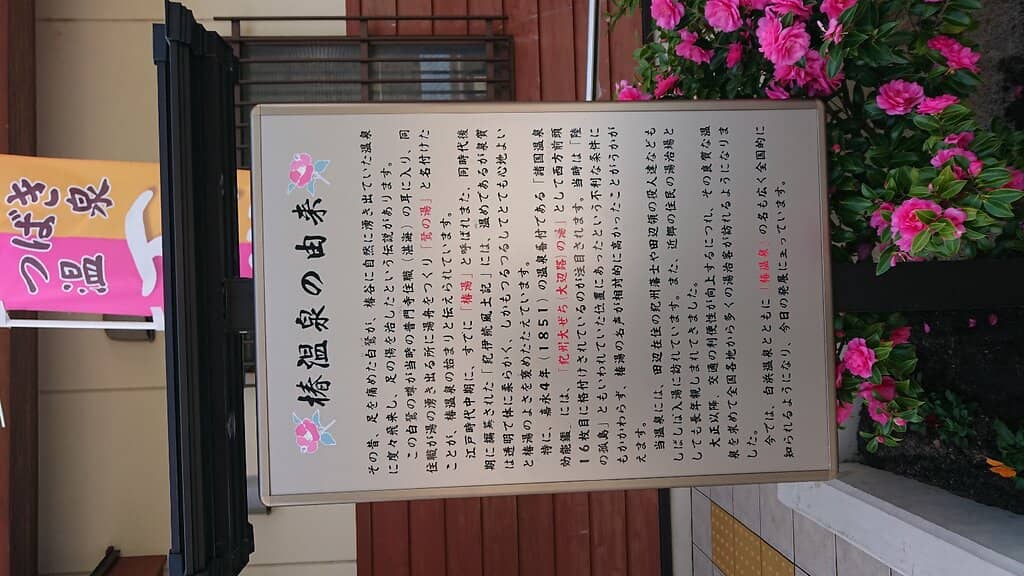 椿温泉の由来
その昔、足を痛めた白鷺が、椿谷に自然に湧き出ていた温泉
に度々飛来し、足の傷を治したという伝説があります。
この白鷺の噂が当時の普門寺住職(湛海)の耳に入り、同
住職が湯の湧き出る所に湯舟をつくり「鷺の湯」と名付けた
ことが、椿温泉の始まりと伝えられています。
江戸時代中期に、すでに「椿湯」と呼ばれまた、同時代後
期に編纂された「紀伊続風土記」には、温めてあるが泉質
は透明で体に柔らかく、しかもつるつるしてとても心地よい
と椿湯のよさを褒めたたえています。
特に、嘉永4年(1851)の温泉番付である「諸国温泉
効能鑑」には、「紀州大ぜち(大辺路)の湯」として西方前頭
16枚目に格付けされているのが注目されます。当時は「陸
の孤島」ともいわれていた位置にあったという不利な条件に
もかかわらず、椿湯の名声が相対的に高かったことがうかが
えます。
当温泉には、田辺在住の紀州藩士や田辺領の役人なども
しばしば入湯に訪れています。また、近郷の住民の湯治場と
しても長年親しまれてきました。
大正以降、交通の利便性が向上するにつれ、その良質な温
泉を求めて全国各地から多くの湯治客が訪れるようになりま
した。
今では、白浜温泉とともに(椿温泉)の名も広く全国的に
知られるようになり、今日の発展に至っています。
つばき
温泉